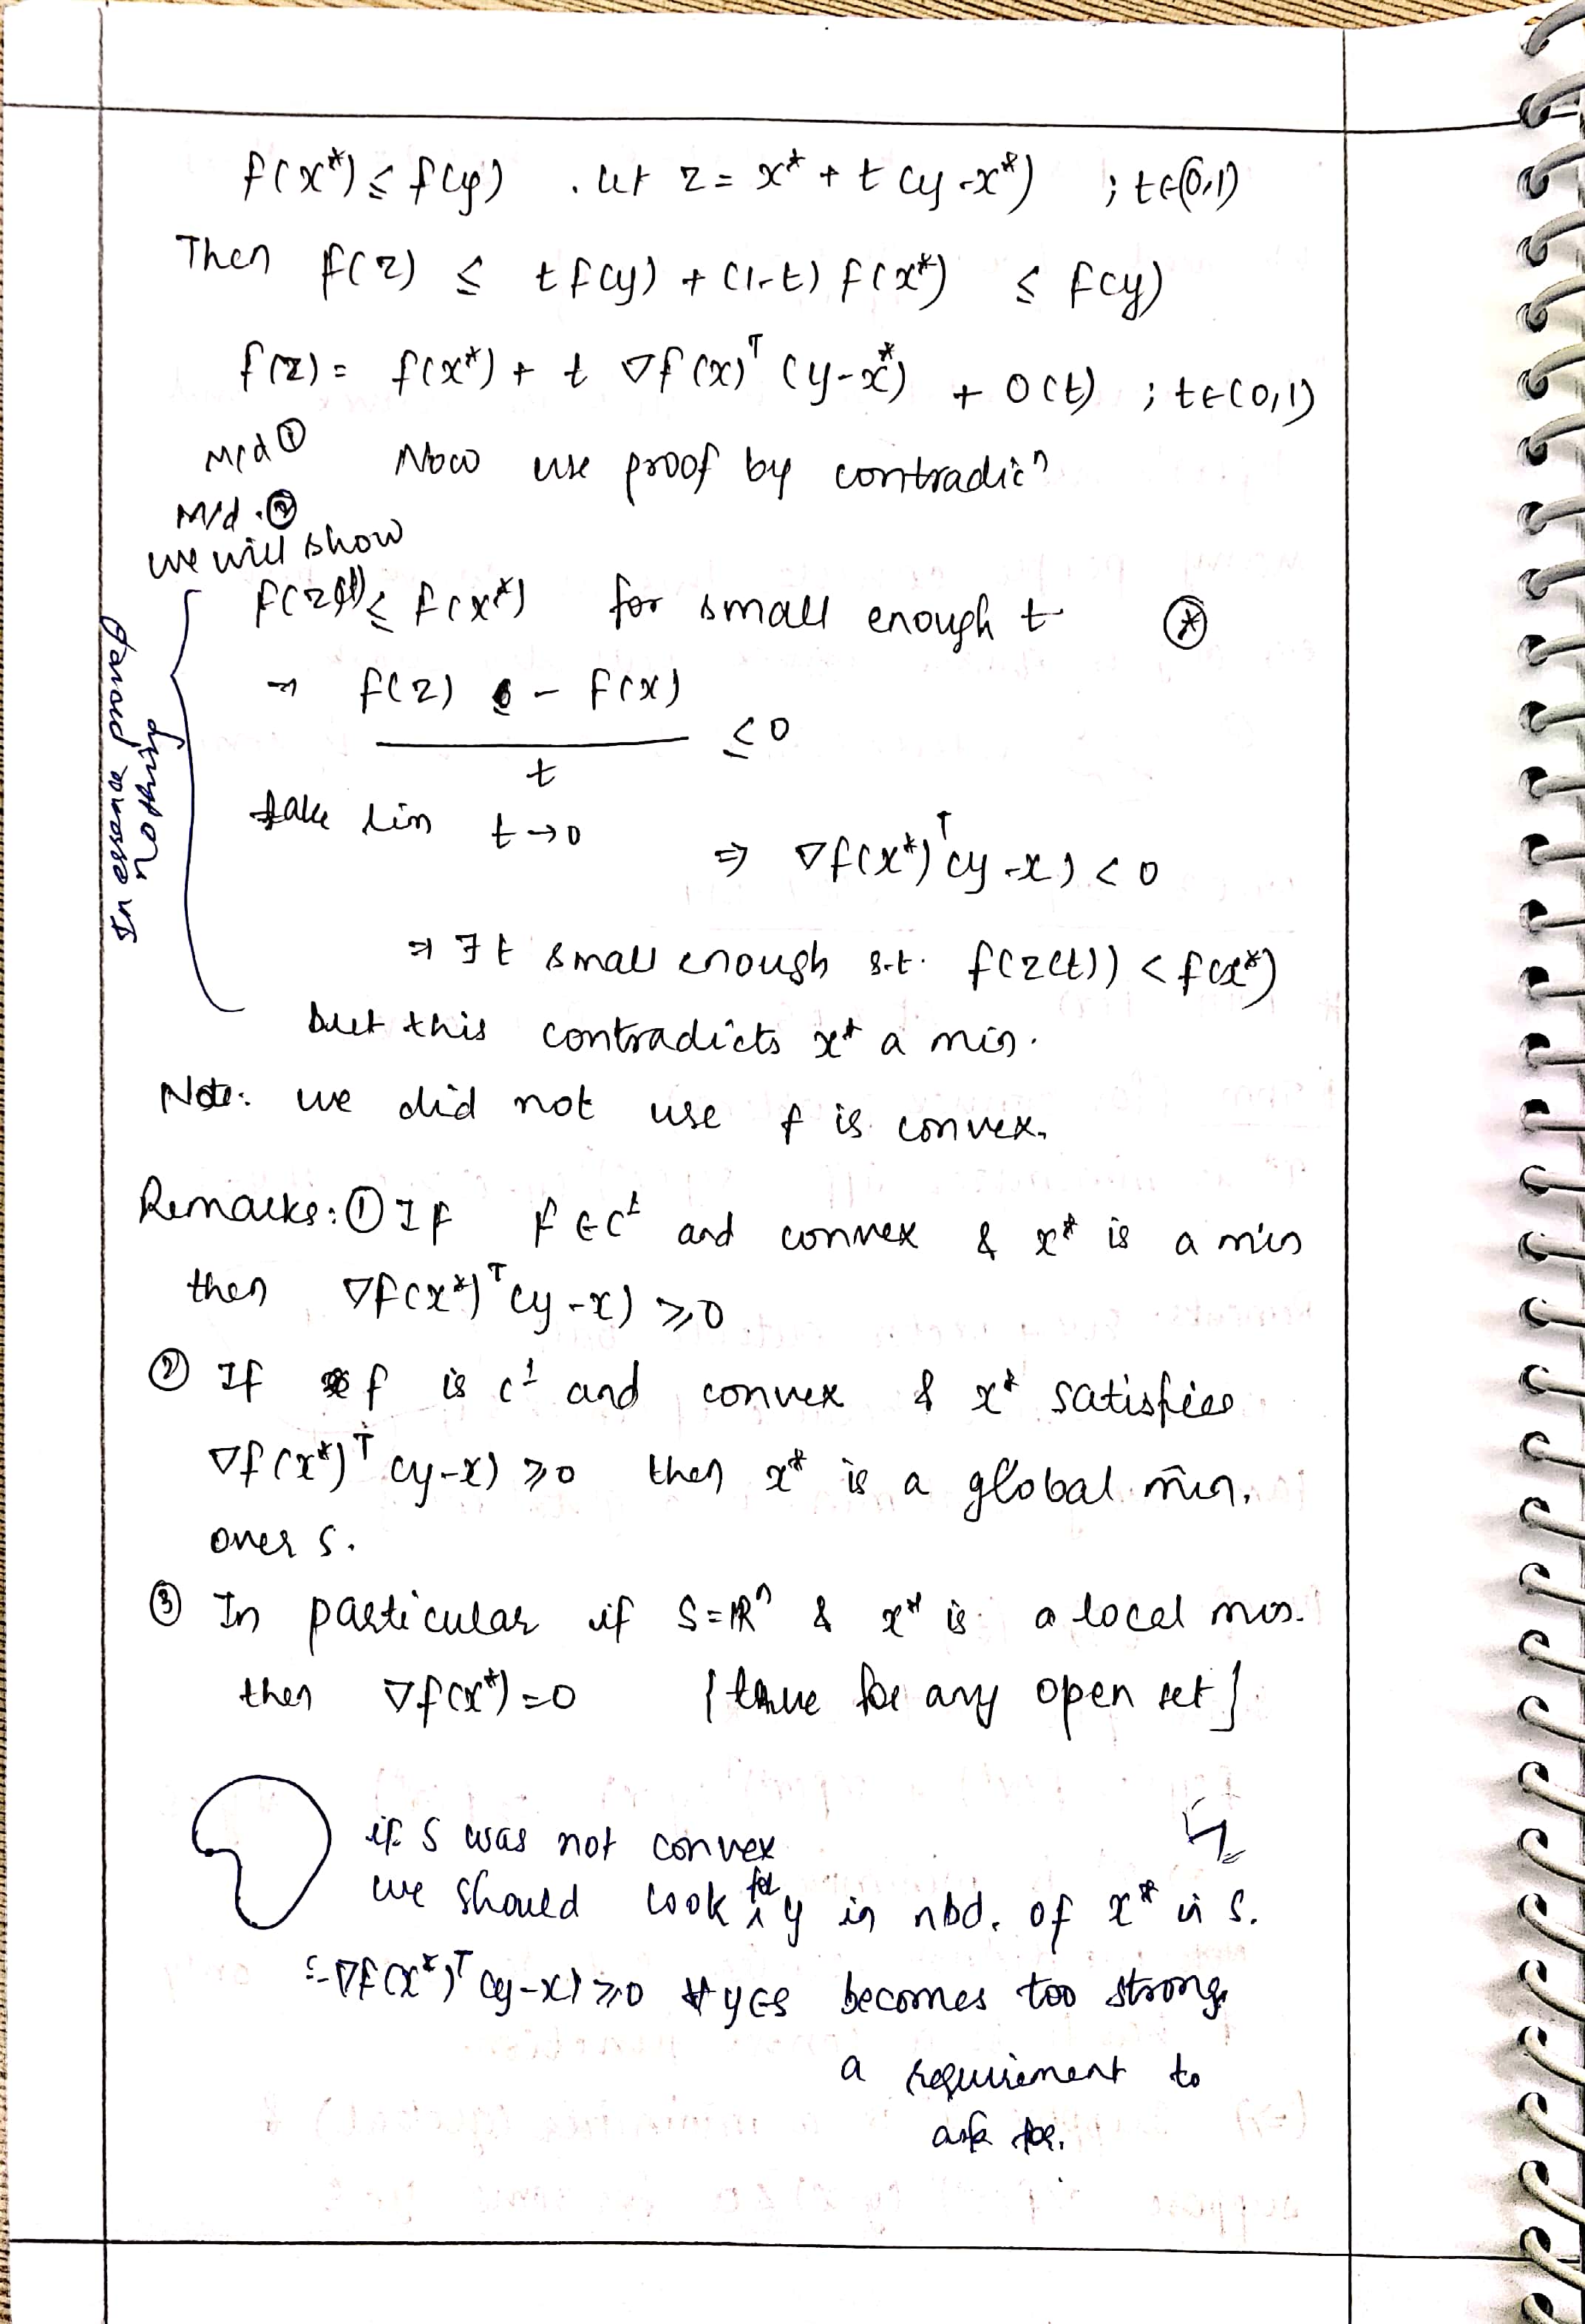 f(x*) ≤ f(y) . let z = x* + t (y-x*) ; t∈(0,1)
Then f(z) ≤ t f(y) + (1-t) f(x*) ≤ f(y)
f(z) = f(x*) + t ∇f(x)ᵀ (y-x*) + o(t) ; t∈(0,1)
M/d ① Now use proof by contradicⁿ
M/d . ②
we will show
f(z(t)) ≤ f(x*) for small enough t ⊛
→ f(z) - f(x)
t
≤ 0
take lim t→0
⇒ ∇f(x*)ᵀ(y-x) < 0
⇒ ∃ t small enough s.t. f(z(t)) < f(x*)
but this contradicts x* a min.
Note: we did not use f is convex.
Remarks: ① If f ∈ C¹ and convex & x* is a min
then ∇f(x*)ᵀ(y-x) ≥ 0
② If f is C¹ and convex & x* satisfies
∇f(x*)ᵀ (y-x) ≥ 0 then x* is a global min.
over S.
③ In particular if S = ℝⁿ & x* is a local min.
then ∇f(x*) = 0 [true for any open set]
if S was not convex
we should look for y in nbd. of x* in S.
∵ ∇f(x*)ᵀ(y-x) ≥ 0 ∀ y∈S becomes too strong
a requirement to
ask for.